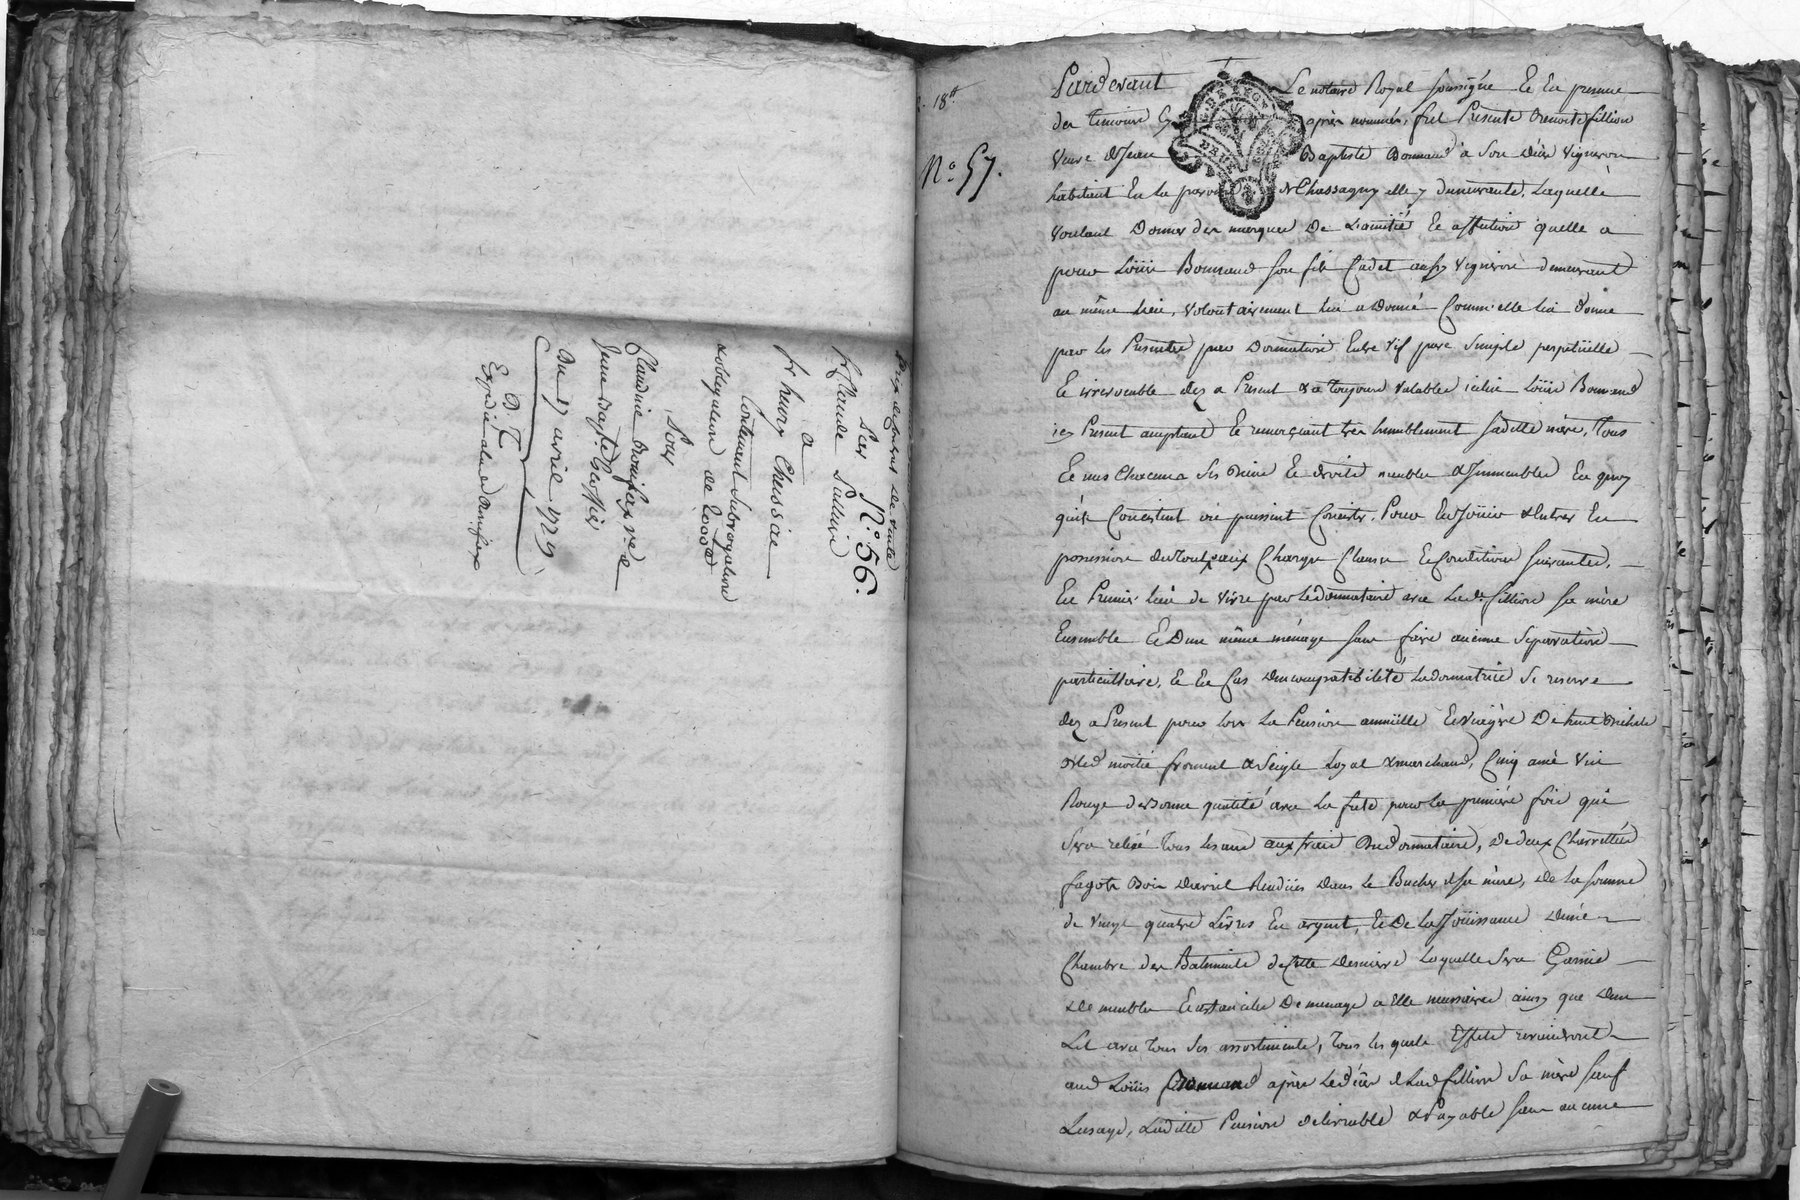 N.° 56.
Sr Claude
a
Sr heury Chaussae
Contenant Subrogation
& obligation de 2000#
pour
Claudine Bonifax ve. de
Jean Bapt.
Du 17 avril 1729
D. C.
Expedié a lad. Bonifax
18#
N.° 57.
Pardevant Le notaire Royal soussigné Et En presence
des temoins Cy après nommés, fut Presente Benoite fillion
veuve de Jean Baptiste Bonnand a son décès vigneron
habitant En la paroisse de Chassagny elle y demeurante, Laquelle
voulant Donner des marques De L'amitié Et affection quelle a
pour Loüis Bonnand son fils Cadet aussy vigneron demeurant
au même Lieu, volontairement lui a Donné Comm'elle lui donne
par les Presentes par Donnation Entre vif pure simple perpetüelle
Et irrevocable dez a Present & a toujours valable audit Loüis Bonnand
icy Present acceptant Et remerçiant tres humblement sadite mère, Tous
Et uns Chacuns ses Biens Et droits meubles & Immeubles En quoy
qu'ils Consistent ou puissent Consister, Pour En Joüir & Entrer En
possession du tout aux Charges Clauses Et Conditions suivantes.
En Premier lieu de vivre par Le donnataire avec Lade. fillion sa mère
Ensemble Et D'un même ménage sans faire aucune separation
particulliere, Et En Cas D'incompatibilité La donnatrice se reserve
dez a Present pour lors La Pension annüelle Et viagère De huit Bichets
Bled moitié froment & seigle Loyal & marchand, Cinq anée vin
Rouge de bonne qualité avec La futs pour la première fois qui
sera relié tous les ans aux frais Dud. donnataire, de deux Charrettées
fagots Bois D'avril Rendües dans Le Bucher de sa mère, de la somme
de vingt quatre Livres En argent, Et De La Joüissance D'une
Chambre des Batiments de Cette Derniere Laquelle sera Garnie
de meubles Et ustancilles De menage a Elle necessaires ainsy que D'un
Lit avec tous ses assortiments, tous les quels Effets reviendront
aud. Loüis Bonnand après Le décès de Lad. fillion sa mère sauf
L'usage, Ladite Pension delivrable & Payable sans aucune